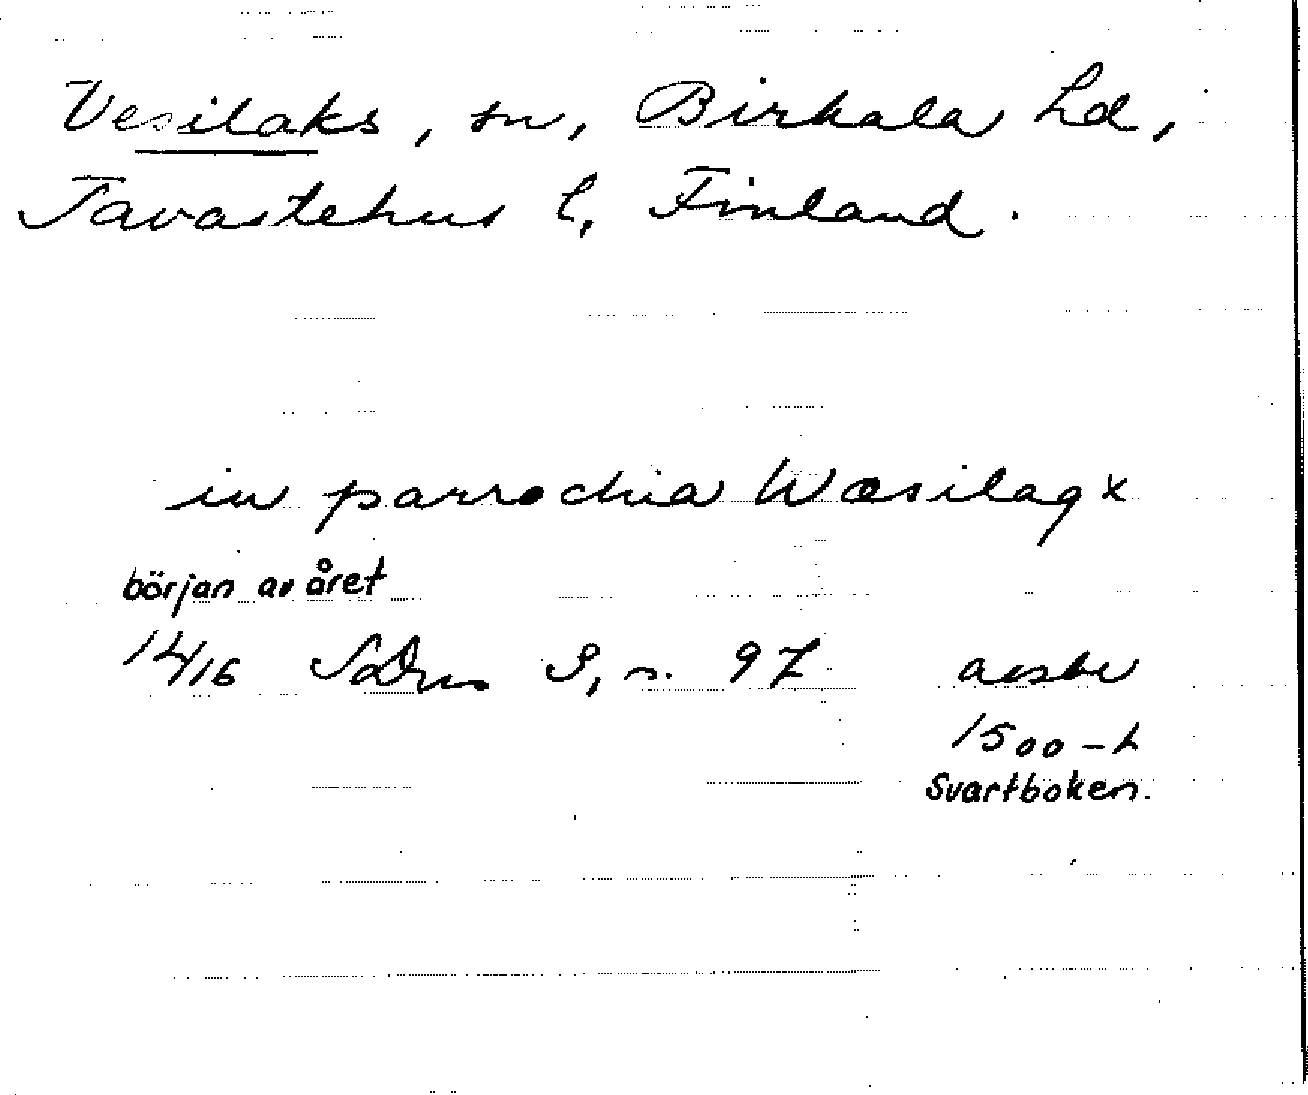 Vesilaks, sn, Birkala hd,
Tavastehus l, Finland.
in parrochia Wæsilagx
början av året
1416 SDns S, s. 97 avskr
1500-t
Svartboken.